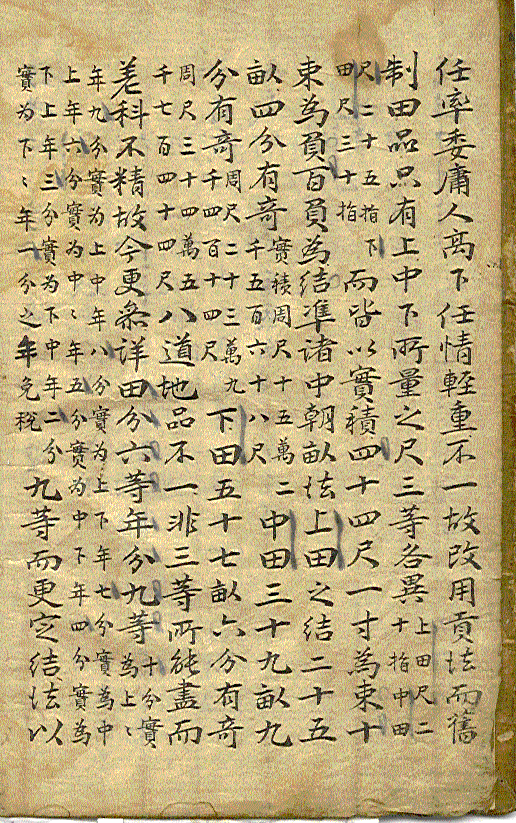 任率委庸人高下任情輕重不一故改用貢法而舊
制田品只有上中下所量之尺三等各異上田尺二
十指中田
尺二十五指下
田尺三十指而皆以實積四十四尺一寸為束十
束為負百負為結準諸中朝畝法上田之結二十五
畝四分有奇實積周尺十五萬二
千五百六十八尺中田三十九畝九
分有奇周尺二十三萬九
千四百十四尺下田五十七畝六分有奇
周尺三十四萬五
千七百四十四尺八道地品不一非三等所能盡而
差科不精故今更叅詳田分六等年分九等十分實
為上々
年九分實為上中年八分實為上下年七分實為中
上年六分實為中々年五分實為中下年四分實為
下上年三分實為下中年二分
實為下々年一分之年免稅九等而更定結法以